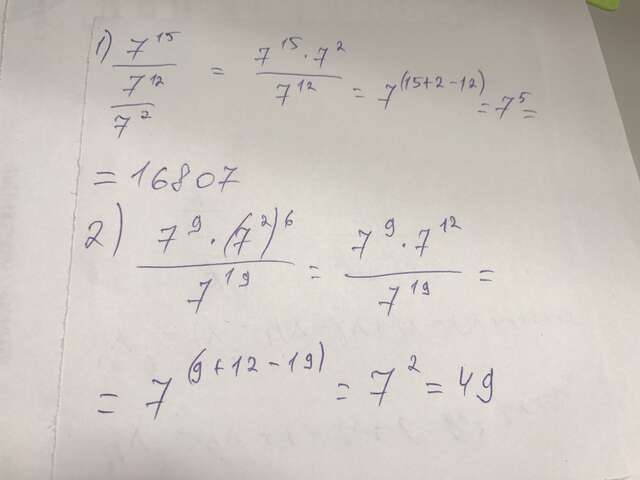 1) 7^15 / (7^12 / 7^2) = (7^15 · 7^2) / 7^12 = 7^(15+2-12) = 7^5 =
= 16807
2) (7^9 · (7^2)^6) / 7^19 = (7^9 · 7^12) / 7^19 =
= 7^(9+12-19) = 7^2 = 49